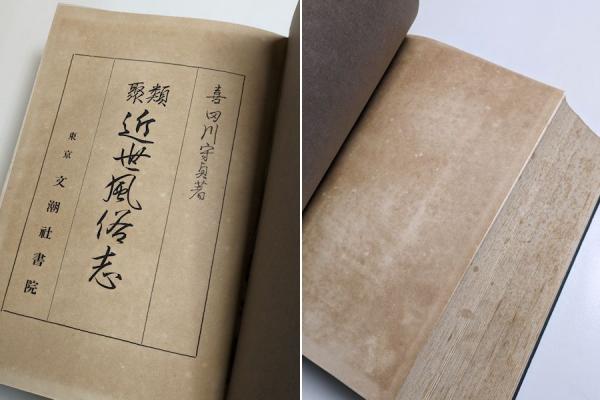 喜田川守貞著
類聚
近世風俗志
東京
文潮社書院